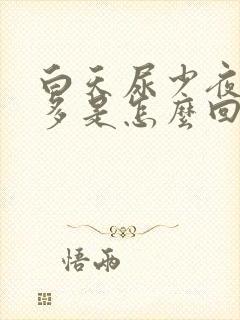 白天尿少夜
多是怎麼回
悟雨